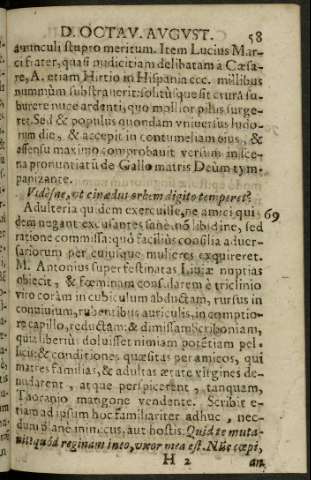 D. OCTAV. AVGVST. 58
auunculi stupro meritum. Item Lucius Mar-
ci frater, quasi pudicitiam delibatam à Cæsa-
re, A. etiam Hirtio in Hispania ccc. millibus
nummûm substrauerit: solitúsque sit crura su-
burere nuce ardenti, quo mollior pilus surge-
ret. Sed & populus quondam vniuersus ludo-
rum die, & accepit in contumeliam eius, &
assensu maximo comprobauit versum in sce-
na pronuntiatũ de Gallo matris Deûm tym-
panizante.
Vidésne, vt cinædus orbem digito temperet?
Adulteria quidem exercuisse, ne amici qui- 69
dem negant: excusantes sanè nõ libidine, sed
ratione commissa: quò faciliùs cosilia aduer-
sariorum per cuiusque mulieres exquireret.
M. Antonius super festinatas Liuiæ nuptias
obiecit, & fœminam consularem è triclinio
viro coràm in cubiculum abductam, rursus in
conuiuium, rubentibus auriculis, incomptio-
re capillo, reductam: & dimissam Scriboniam,
quia liberiùs doluisset nimiam potẽtiam pel-
licis: & conditiones quæsitas per amicos, qui
matres familias, & adultas ætate virgines de-
nudarent, atque perspicerent, tanquam,
Thoranio mangone vendente. Scribit e-
tiam ad ipsum hoc familiariter adhuc, nec-
dum planè inimicus, aut hostis. Quid te muta-
uit? quòd reginam ineo, vxor mea est. Nũc cœpi,
H 2 an